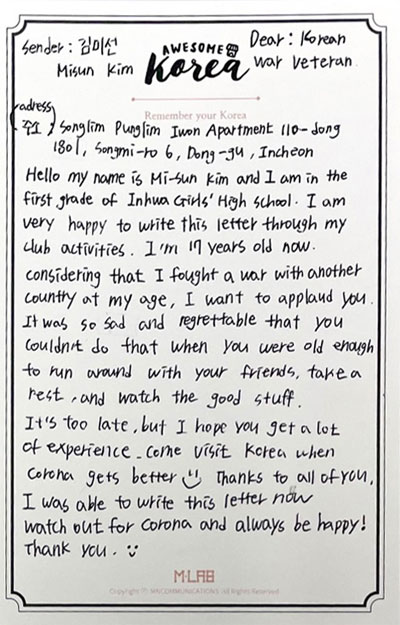 Sender : 김미선
Misun Kim
AWESOME
Korea
Dear : Korean
War Veteran
Remember your Korea
(adress)
주소 : Songlim Punglim Iwon Apartment 110-dong
1801, Songmi-ro 6, Dong-gu, Incheon
Hello my name is Mi-sun Kim and I am in the
first grade of Inhwa Girls' High school. I am
very happy to write this letter through my
club activities. I'm 17 years old now.
considering that I fought a war with another
country at my age, I want to applaud you.
It was so sad and regrettable that you
couldn't do that when you were old enough
to run around with your friends, take a
rest, and watch the good stuff.
It's too late, but I hope you get a lot
of experience. Come visit Korea when
Corona gets better Thanks to all of you,
I was able to write this letter now
watch out for Corona and always be happy!
Thank you.
M·LAB
Copyright ⓒ MNCOMMUNICATIONS. All Rights Reserved